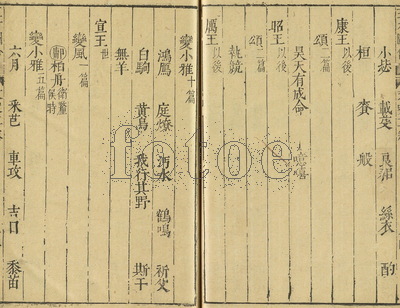 小毖 載芟 良耜 絲衣 酌
桓 賚 般
康王以後
頌二篇
昊天有成命 噫嘻
昭王以後
頌一篇
執競
厲王以後
變小雅十篇
鴻鴈 庭燎 沔水 鶴鳴 祈父
白駒 黃鳥 我行其野 斯干
無羊
宣王世
變風一篇
鄘柏舟衛釐侯時
變小雅五篇
六月 采芑 車攻 吉日 黍苗
fotoe